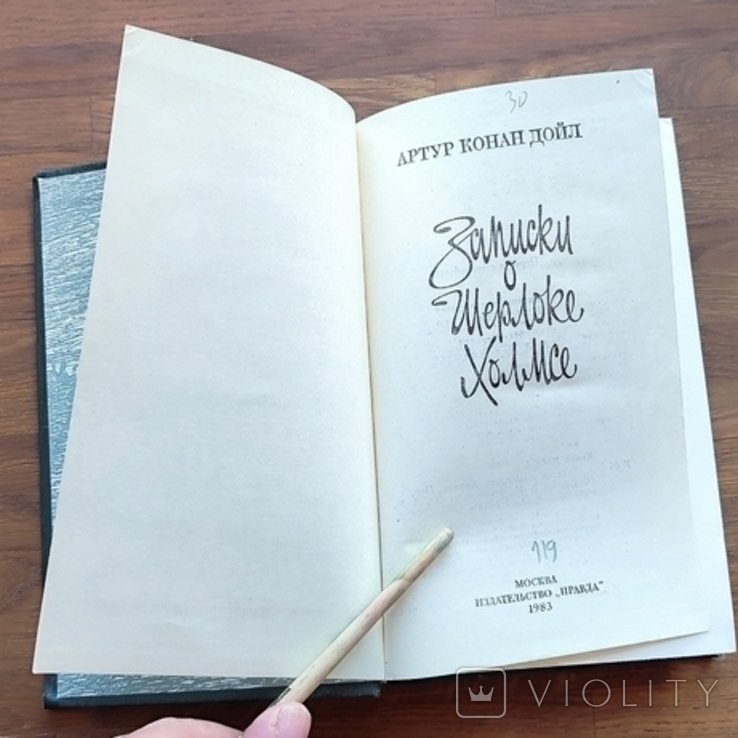 30
АРТУР КОНАН ДОЙЛ
Записки
о
Шерлоке
Холмсе
119
МОСКВА
ИЗДАТЕЛЬСТВО „ПРАВДА"
1983
VIOLITY